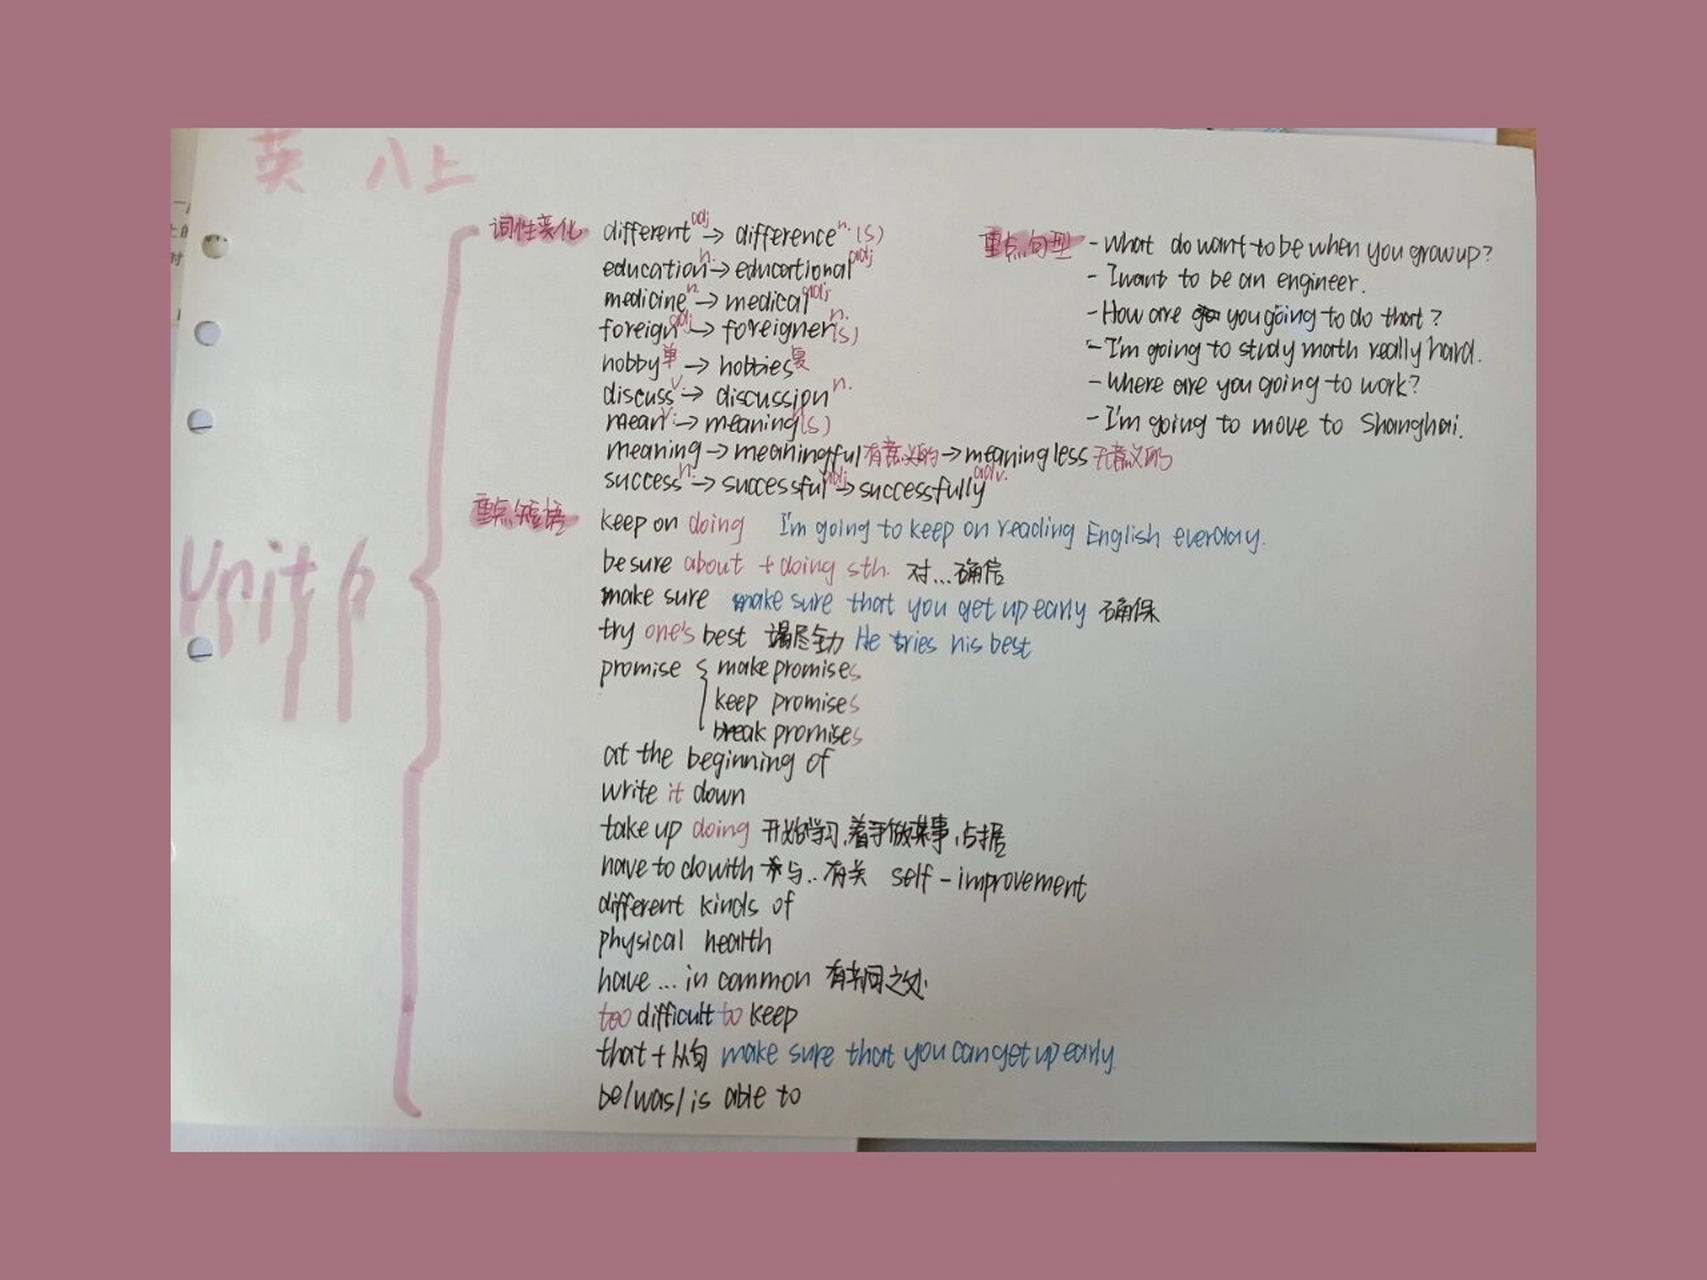 英 八上
Unit 6
词性变化
different adj → difference n. (s)
education n. → educational adj
medicine n. → medical adj
foreign adj → foreigner n. (s)
hobby 单 → hobbies 复
discuss v. → discussion n.
mean v. → meaning n (s)
meaning → meaningful 有意义的 → meaningless 无意义的
success n. → successful adj → successfully adv.
重点短语
keep on doing I'm going to keep on reading English everday.
be sure about + doing sth. 对...确信
make sure make sure that you get up early 确保
try one's best 竭尽全力 He tries his best
promise { make promises
keep promises
break promises
at the beginning of
write it down
take up doing 开始学习,着手做某事,占据
have to do with 与..有关 self-improvement
different kinds of
physical health
have ... in common 有共同之处.
too difficult to keep
that + 从句 make sure that you can get up early.
be/was/is able to
重点句型
- What do want to be when you grow up?
- I want to be an engineer.
- How are you going to do that?
- I'm going to study math really hard.
- Where are you going to work?
- I'm going to move to Shanghai.